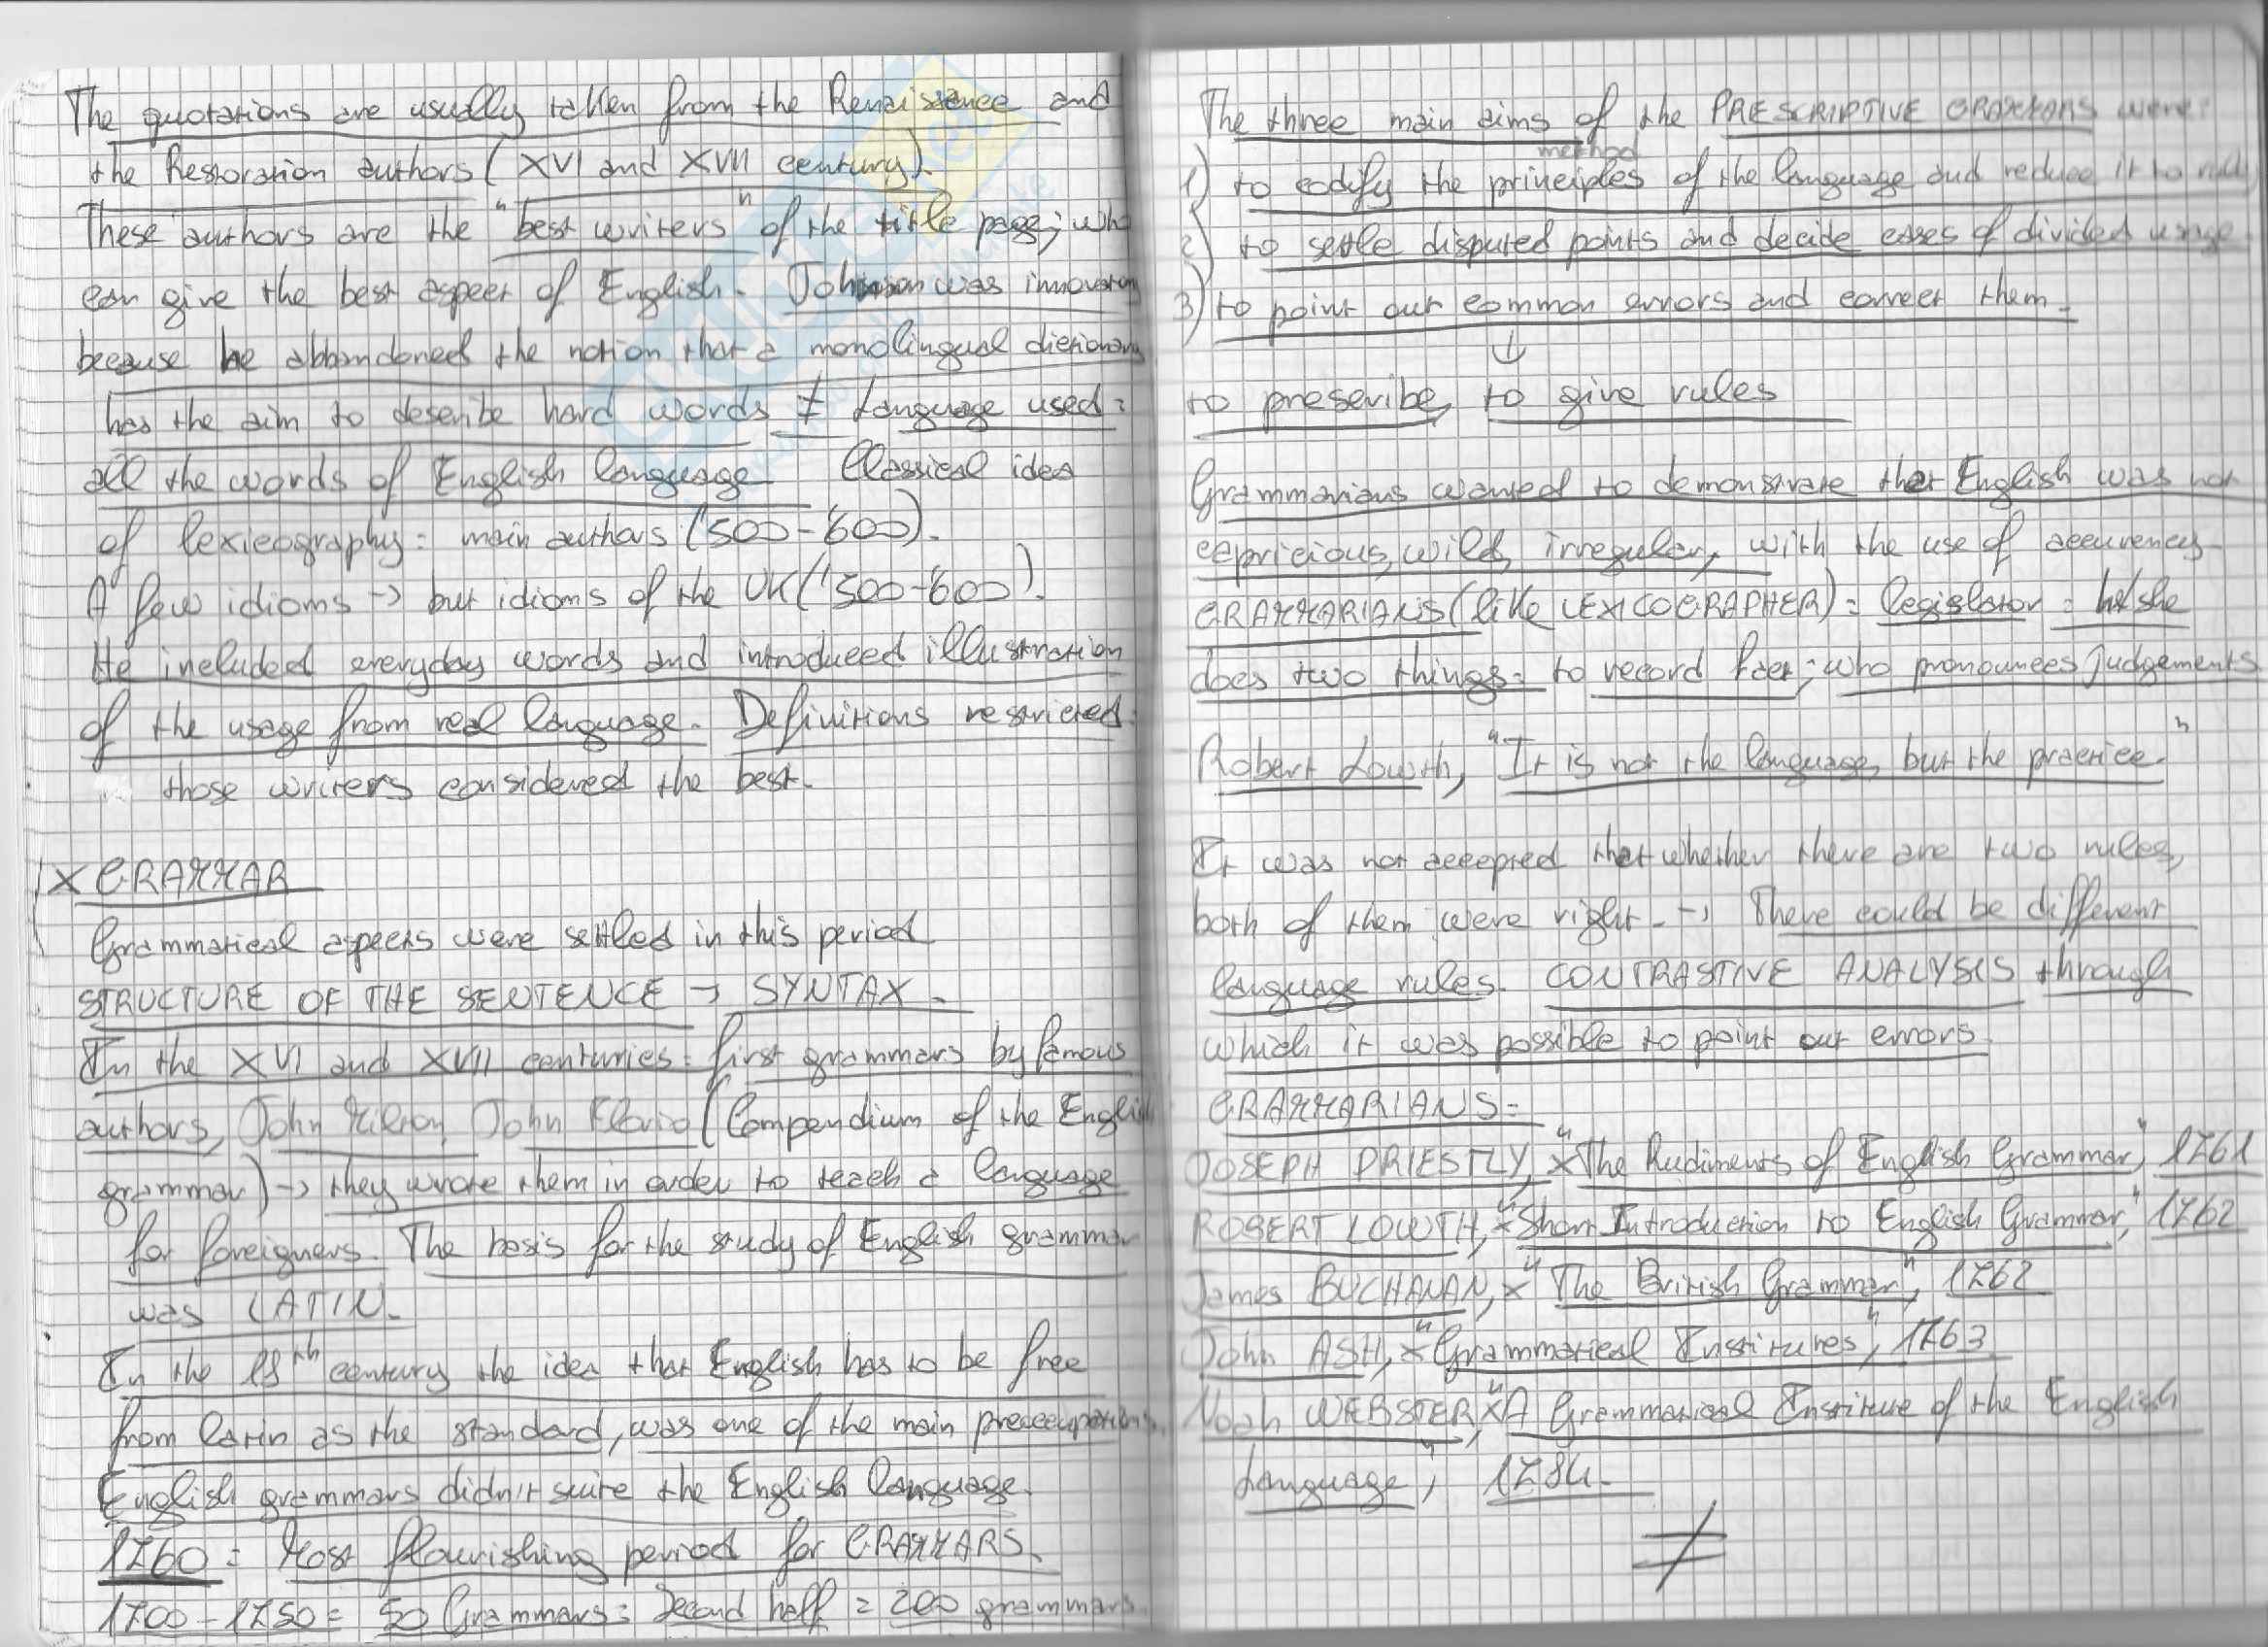 The quotations are usually taken from the Renaissance and
the Restoration authors (XVI and XVII century).
These authors are the "best writers" of the title page; who
can give the best aspect of English. Johnson was innovatory
because he abbandoned the notion that a monolingual dictionary
has the aim to describe hard words ≠ Language used:
all the words of English language Classical idea
of lexicography: main authors ('500-'600).
A few idioms → but idioms of the UK ('500-'600).
He included everyday words and introduced illustration
of the usage from real language. Definitions restricted:
those writers considered the best.
X GRAMMAR
Grammatical aspects were settled in this period
STRUCTURE OF THE SENTENCE → SYNTAX.
In the XVI and XVII centuries: first grammars by famous
authors, John Milton, John Florio (Compendium of the English
grammar) → they wrote them in order to teach a language
for foreigners. The basis for the study of English grammar
was LATIN.
In the 18th century the idea that English has to be free
from latin as the standard, was one of the main preoccupations.
English grammars didn't suite the English language.
1760 = Most flourishing period for GRAMMARS.
1700-1750 = 50 Grammars: Second half = 200 grammars.
The three main aims of the PRESCRIPTIVE GRAMMARS were:
method
1) to codify the principles of the language and reduce it to rule;
2) to settle disputed points and decide cases of divided usage
3) to point out common errors and correct them.
↓
to prescribe, to give rules
Grammarians wanted to demonstrate that English was not
capricious, wild, irregular, with the use of accurency.
GRAMMARIANS (like LEXICOGRAPHER) = legislator = he/she
does two things: to record fact; who pronounces judgements
Robert Lowth, "It is not the language, but the practice."
It was not accepted that whether there are two rules,
both of them were right. → There could be different
language rules. CONTRASTIVE ANALYSIS through
which it was possible to point out errors.
GRAMMARIANS:
JOSEPH PRIESTLY, x "The Rudiments of English Grammar", 1761
ROBERT LOWTH, x "Short Introduction to English Grammar", 1762
James BUCHANAN, x "The British Grammar", 1762
John ASH, x "Grammatical Institutes", 1763
Noah WEBSTER, x "A Grammatical Institute of the English
Language", 1784.
≠